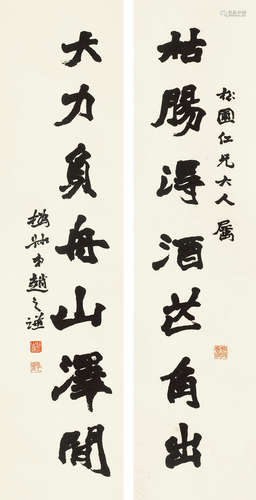 松圃仁兄大人屬
枯腸淂酒芒角出
大力負舟山澤閒
撝叔弟趙之謙